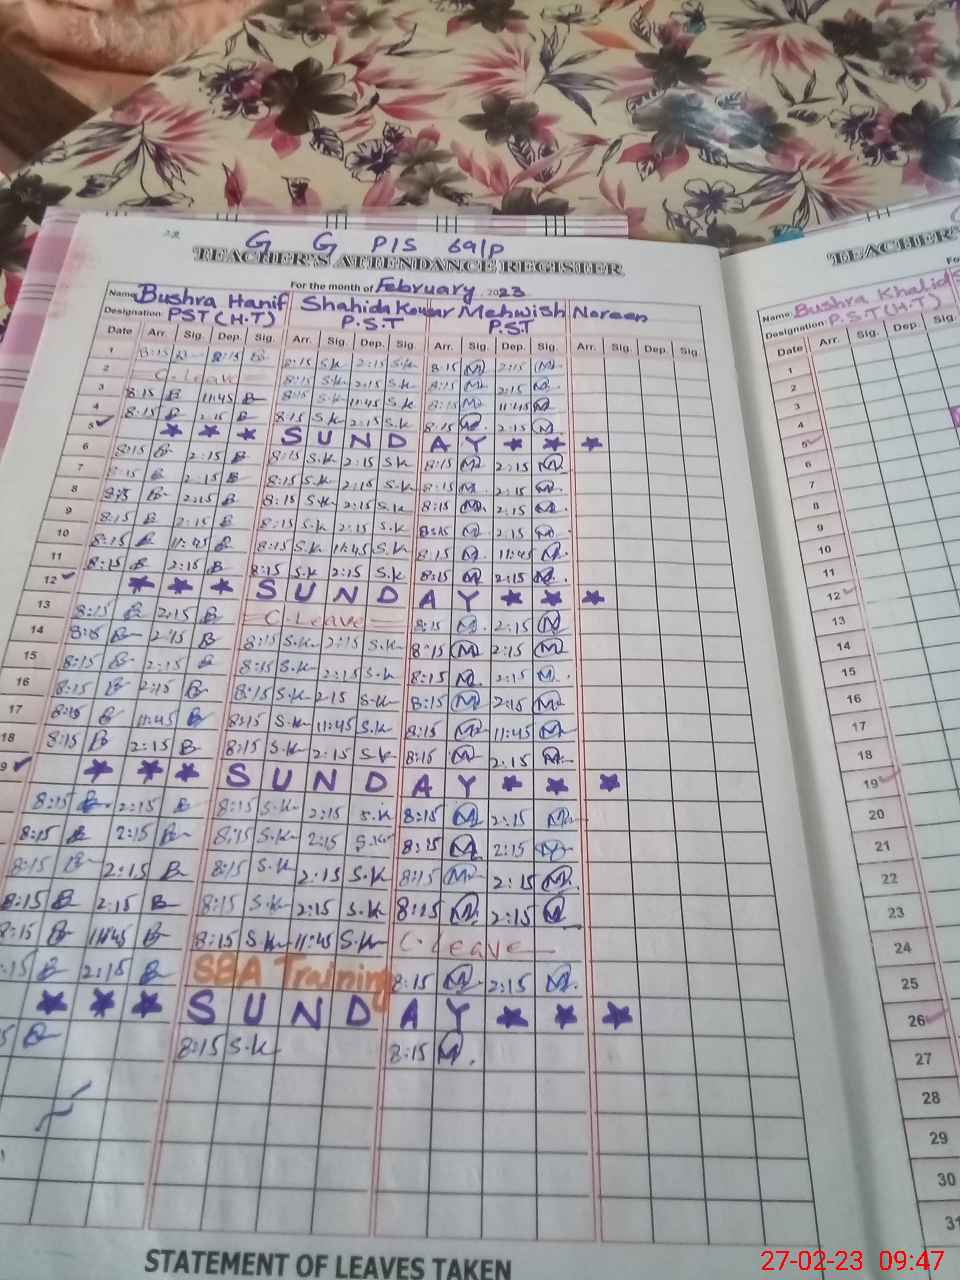 G G P/S 69/P
TEACHER'S ATTENDANCE REGISTER
For the month of February 2023
Name Bushra Hanif Shahida Kousar Mehwish Noreen
Designation PST (H.T) P.S.T P.S.T
Date Arr. Sig. Dep. Sig. Arr. Sig. Dep. Sig. Arr. Sig. Dep. Sig. Arr. Sig. Dep. Sig.
1 8:15 B 2:15 B 8:15 S.K 2:15 S.K 8:15 M 2:15 M
2 C.Leave 8:15 S.K 2:15 S.K 8:15 M 2:15 M
3 8:15 B 11:45 B 8:15 S.K 11:45 S.K 8:15 M 11:45 M
4 8:15 B 2:15 B 8:15 S.K 2:15 S.K 8:15 M 2:15 M
5 SUNDAY
6 8:15 B 2:15 B 8:15 S.K 2:15 S.K 8:15 M 2:15 M
7 8:15 B 2:15 B 8:15 S.K 2:15 S.K 8:15 M 2:15 M
8 8:15 B 2:15 B 8:15 S.K 2:15 S.K 8:15 M 2:15 M
9 8:15 B 2:15 B 8:15 S.K 2:15 S.K 8:15 M 2:15 M
10 8:15 B 11:45 B 8:15 S.K 11:45 S.K 8:15 M 11:45 M
11 8:15 B 2:15 B 8:15 S.K 2:15 S.K 8:15 M 2:15 M
12 SUNDAY
13 8:15 B 2:15 B C.Leave 8:15 M 2:15 M
14 8:15 B 2:15 B 8:15 S.K 2:15 S.K 8:15 M 2:15 M
15 8:15 B 2:15 B 8:15 S.K 2:15 S.K 8:15 M 2:15 M
16 8:15 B 2:15 B 8:15 S.K 2:15 S.K 8:15 M 2:15 M
17 8:15 B 11:45 B 8:15 S.K 11:45 S.K 8:15 M 11:45 M
18 8:15 B 2:15 B 8:15 S.K 2:15 S.K 8:15 M 2:15 M
9 SUNDAY
8:15 B 2:15 B 8:15 S.K 2:15 S.K 8:15 M 2:15 M
8:15 B 2:15 B 8:15 S.K 2:15 S.K 8:15 M 2:15 M
8:15 B 2:15 B 8:15 S.K 2:15 S.K 8:15 M 2:15 M
8:15 B 2:15 B 8:15 S.K 2:15 S.K 8:15 M 2:15 M
8:15 B 11:45 B 8:15 S.K 11:45 S.K C.Leave
:15 B 2:15 B SBA Training 8:15 M 2:15 M
SUNDAY
5 B 8:15 S.K 8:15 M
STATEMENT OF LEAVES TAKEN
TEACHER'S
Name Bushra Khalid
Designation P.S.T (H.T)
Date Arr. Sig. Dep. Sig.
1
2
3
4
5
6
7
8
9
10
11
12
13
14
15
16
17
18
19
20
21
22
23
24
25
26
27
28
29
30
31
27-02-23 09:47